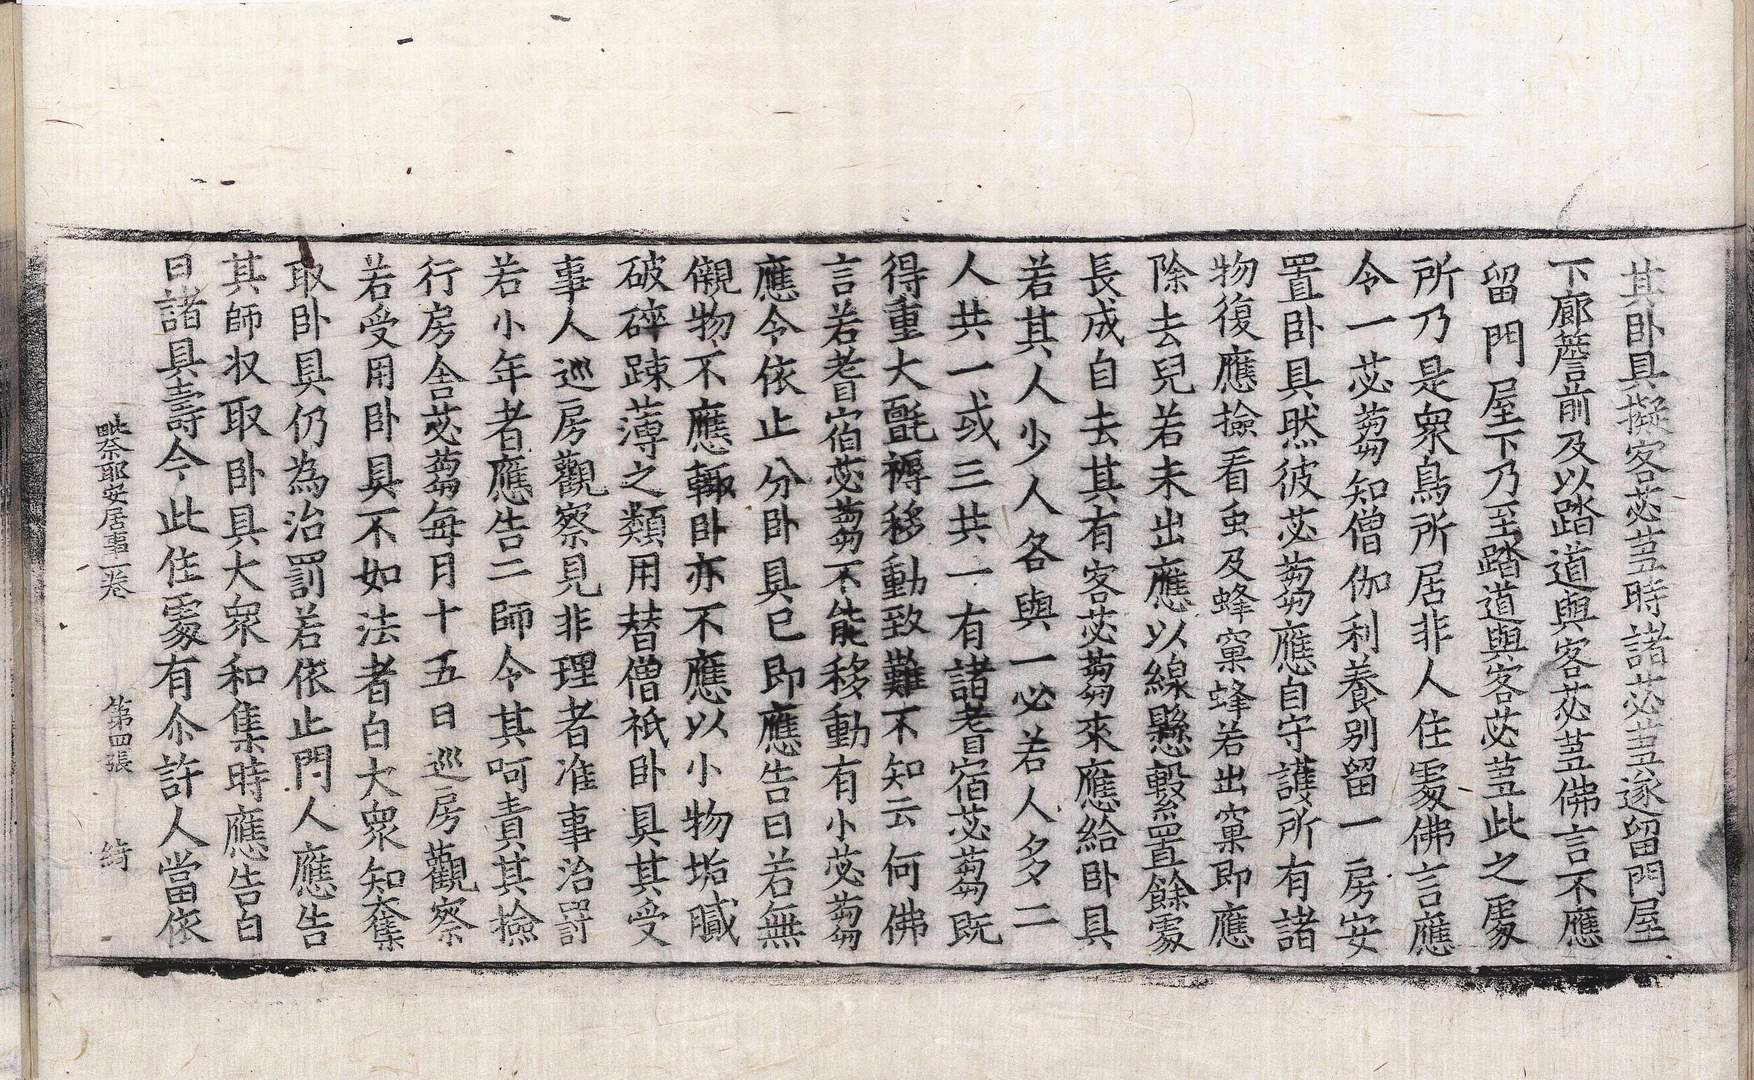 其卧具擬客苾芻時諸苾芻遂留門屋
下廊簷前及以踏道與客苾芻佛言不應
留門屋下乃至踏道與客苾芻此之䖏
所乃是衆鳥所居非人住䖏佛言應
令一苾蒭知僧伽利養别留一房安
置卧具然彼苾蒭應自守護所有諸
物復應撿看虫及蜂窠蜂若出窠即應
除去兒若未出應以線懸繫置餘䖏
長成自去其有客苾蒭來應給卧具
若其人少人各與一必若人多二
人共一或三共一有諸耆宿苾蒭既
得重大氈褥移動致難不知云何佛
言若耆宿苾蒭不能移動有小苾蒭
應令依止分卧具已即應告曰若無
儭物不應輙卧亦不應以小物垢膩
破碎踈薄之類用替僧祇卧具其受
事人巡房觀察見非理者准事治罰
若小年者應告二師令其呵責其撿
行房舎苾蒭每月十五日巡房觀察
若受用卧具不如法者白大衆知奪
取卧具仍為治罰若依止門人應告
其師収取卧具大衆和集時應告白
曰諸具壽今此住䖏有尒許人當依
毗奈耶安居事一卷 第四張 綺